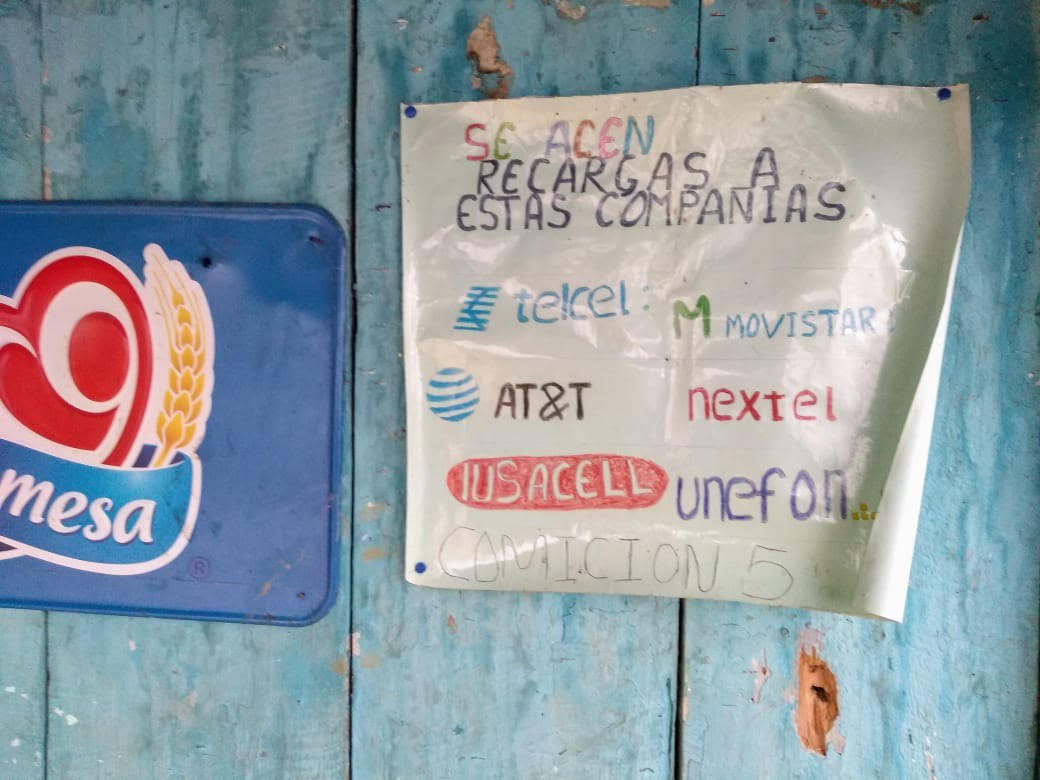 SE ACEN
RECARGAS A
ESTAS COMPANIAS
telcel:
M MOVISTAR:
AT&T
nextel
IUSACELL
unefon...
COMICION 5
mesa
®